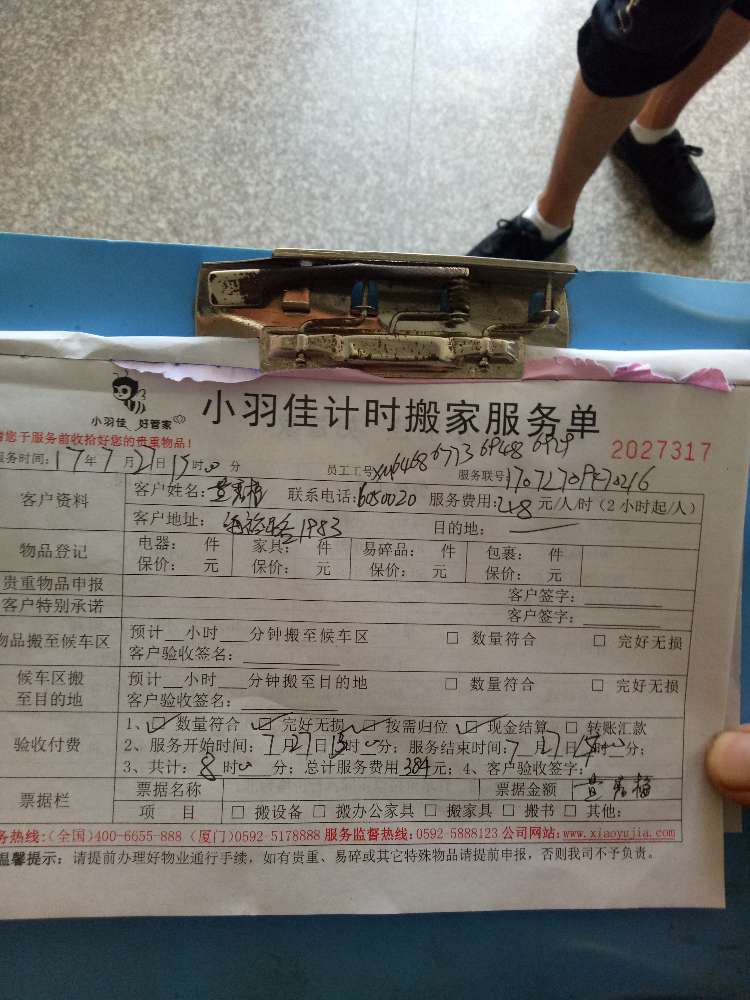 小羽佳 好管家
小羽佳计时搬家服务单
2027317
请您于服务前收拾好您的贵重物品!
服务时间:17年7月27日15时00分 员工工号 6468 6773 6948 6929 服务联号
客户资料
客户姓名: 联系电话:6050020 服务费用:48元/人/时(2小时起/人)
客户地址: 1983 目的地:
物品登记
电器: 件 家具: 件 易碎品: 件 包裹: 件
保价: 元 保价: 元 保价: 元 保价: 元
贵重物品申报 客户签字:
客户特别承诺 客户签字:
物品搬至候车区
预计__小时___分钟搬至候车区 □ 数量符合 □ 完好无损
客户验收签名:
候车区搬至目的地
预计__小时___分钟搬至目的地 □ 数量符合 □ 完好无损
客户验收签名:
验收付费
1、☑ 数量符合 ☑ 完好无损 ☑ 按需归位 ☑ 现金结算 □ 转账汇款
2、服务开始时间:7月27日15时00分;服务结束时间:7月27日 时00分;
3、共计:8时00分;总计服务费用384元;4、客户验收签字:
票据栏
票据名称 票据金额
项 目 □ 搬设备 □ 搬办公家具 □ 搬家具 □ 搬书 □ 其他:
服务热线:(全国)400-6655-888 (厦门)0592-5178888 服务监督热线:0592-5888123 公司网站:www.xiaoyujia.com
温馨提示:请提前办理好物业通行手续,如有贵重、易碎或其它特殊物品请提前申报,否则我司不予负责。